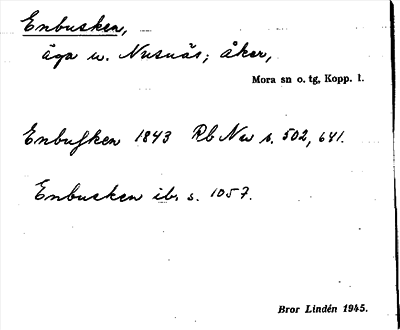 Enbusken,
äga u. Nusnäs; åker,
Mora sn o. tg, Kopp. l.
Enbusken 1843 Rb New s. 502, 641.
Enbusken ib. s. 1057.
Bror Lindén 1945.